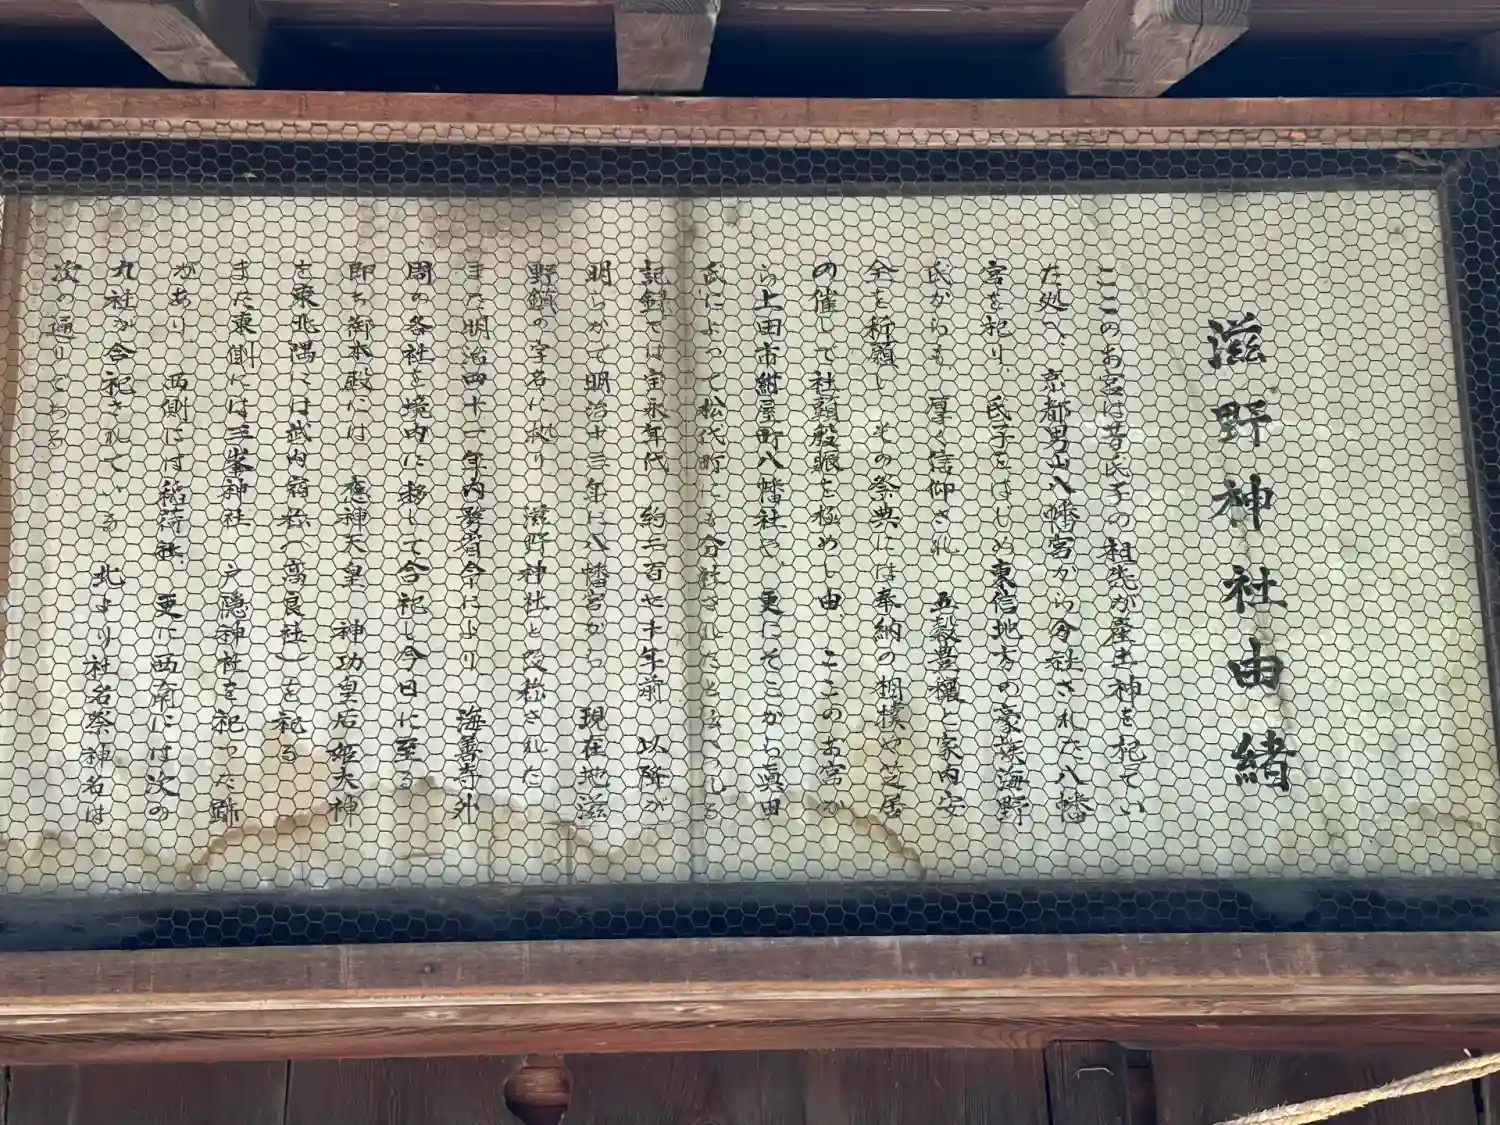 滋野神社由緒
ここのお宮は昔氏子の祖先が産土神を祀てい
た処へ、京都男山八幡宮から分社された八幡
宮を祀り、氏子をはじめ東信地方の豪族海野
氏からも、厚く信仰され 五穀豊穣と家内安
全を祈願し、その祭典には奉納の相撲や芝居
の催しで社頭殷賑を極めし由 ここのお宮か
ら上田市紺屋町八幡社や、更にそこから眞田
氏によって松代町にも分社されたと伝へられる
記録では宝永年代 約二百七十年前 以降が
明らかで明治十三年に八幡宮から 現在地滋
野鎮の字名に拠り 滋野神社と改称された
また明治四十一年内務省令により 海善寺外
周の各社を境内に移して合祀し今日に至る
即ち御本殿には 應神天皇 神功皇后 姫大神
を東北隅には武内宿祢(高良社)を祀る
また東側には三峯神社 戸隠神社を祀った跡
があり、西側には稲荷社、更に西南には次の
九社が合祀されている 北より社名祭神名は
次の通りである